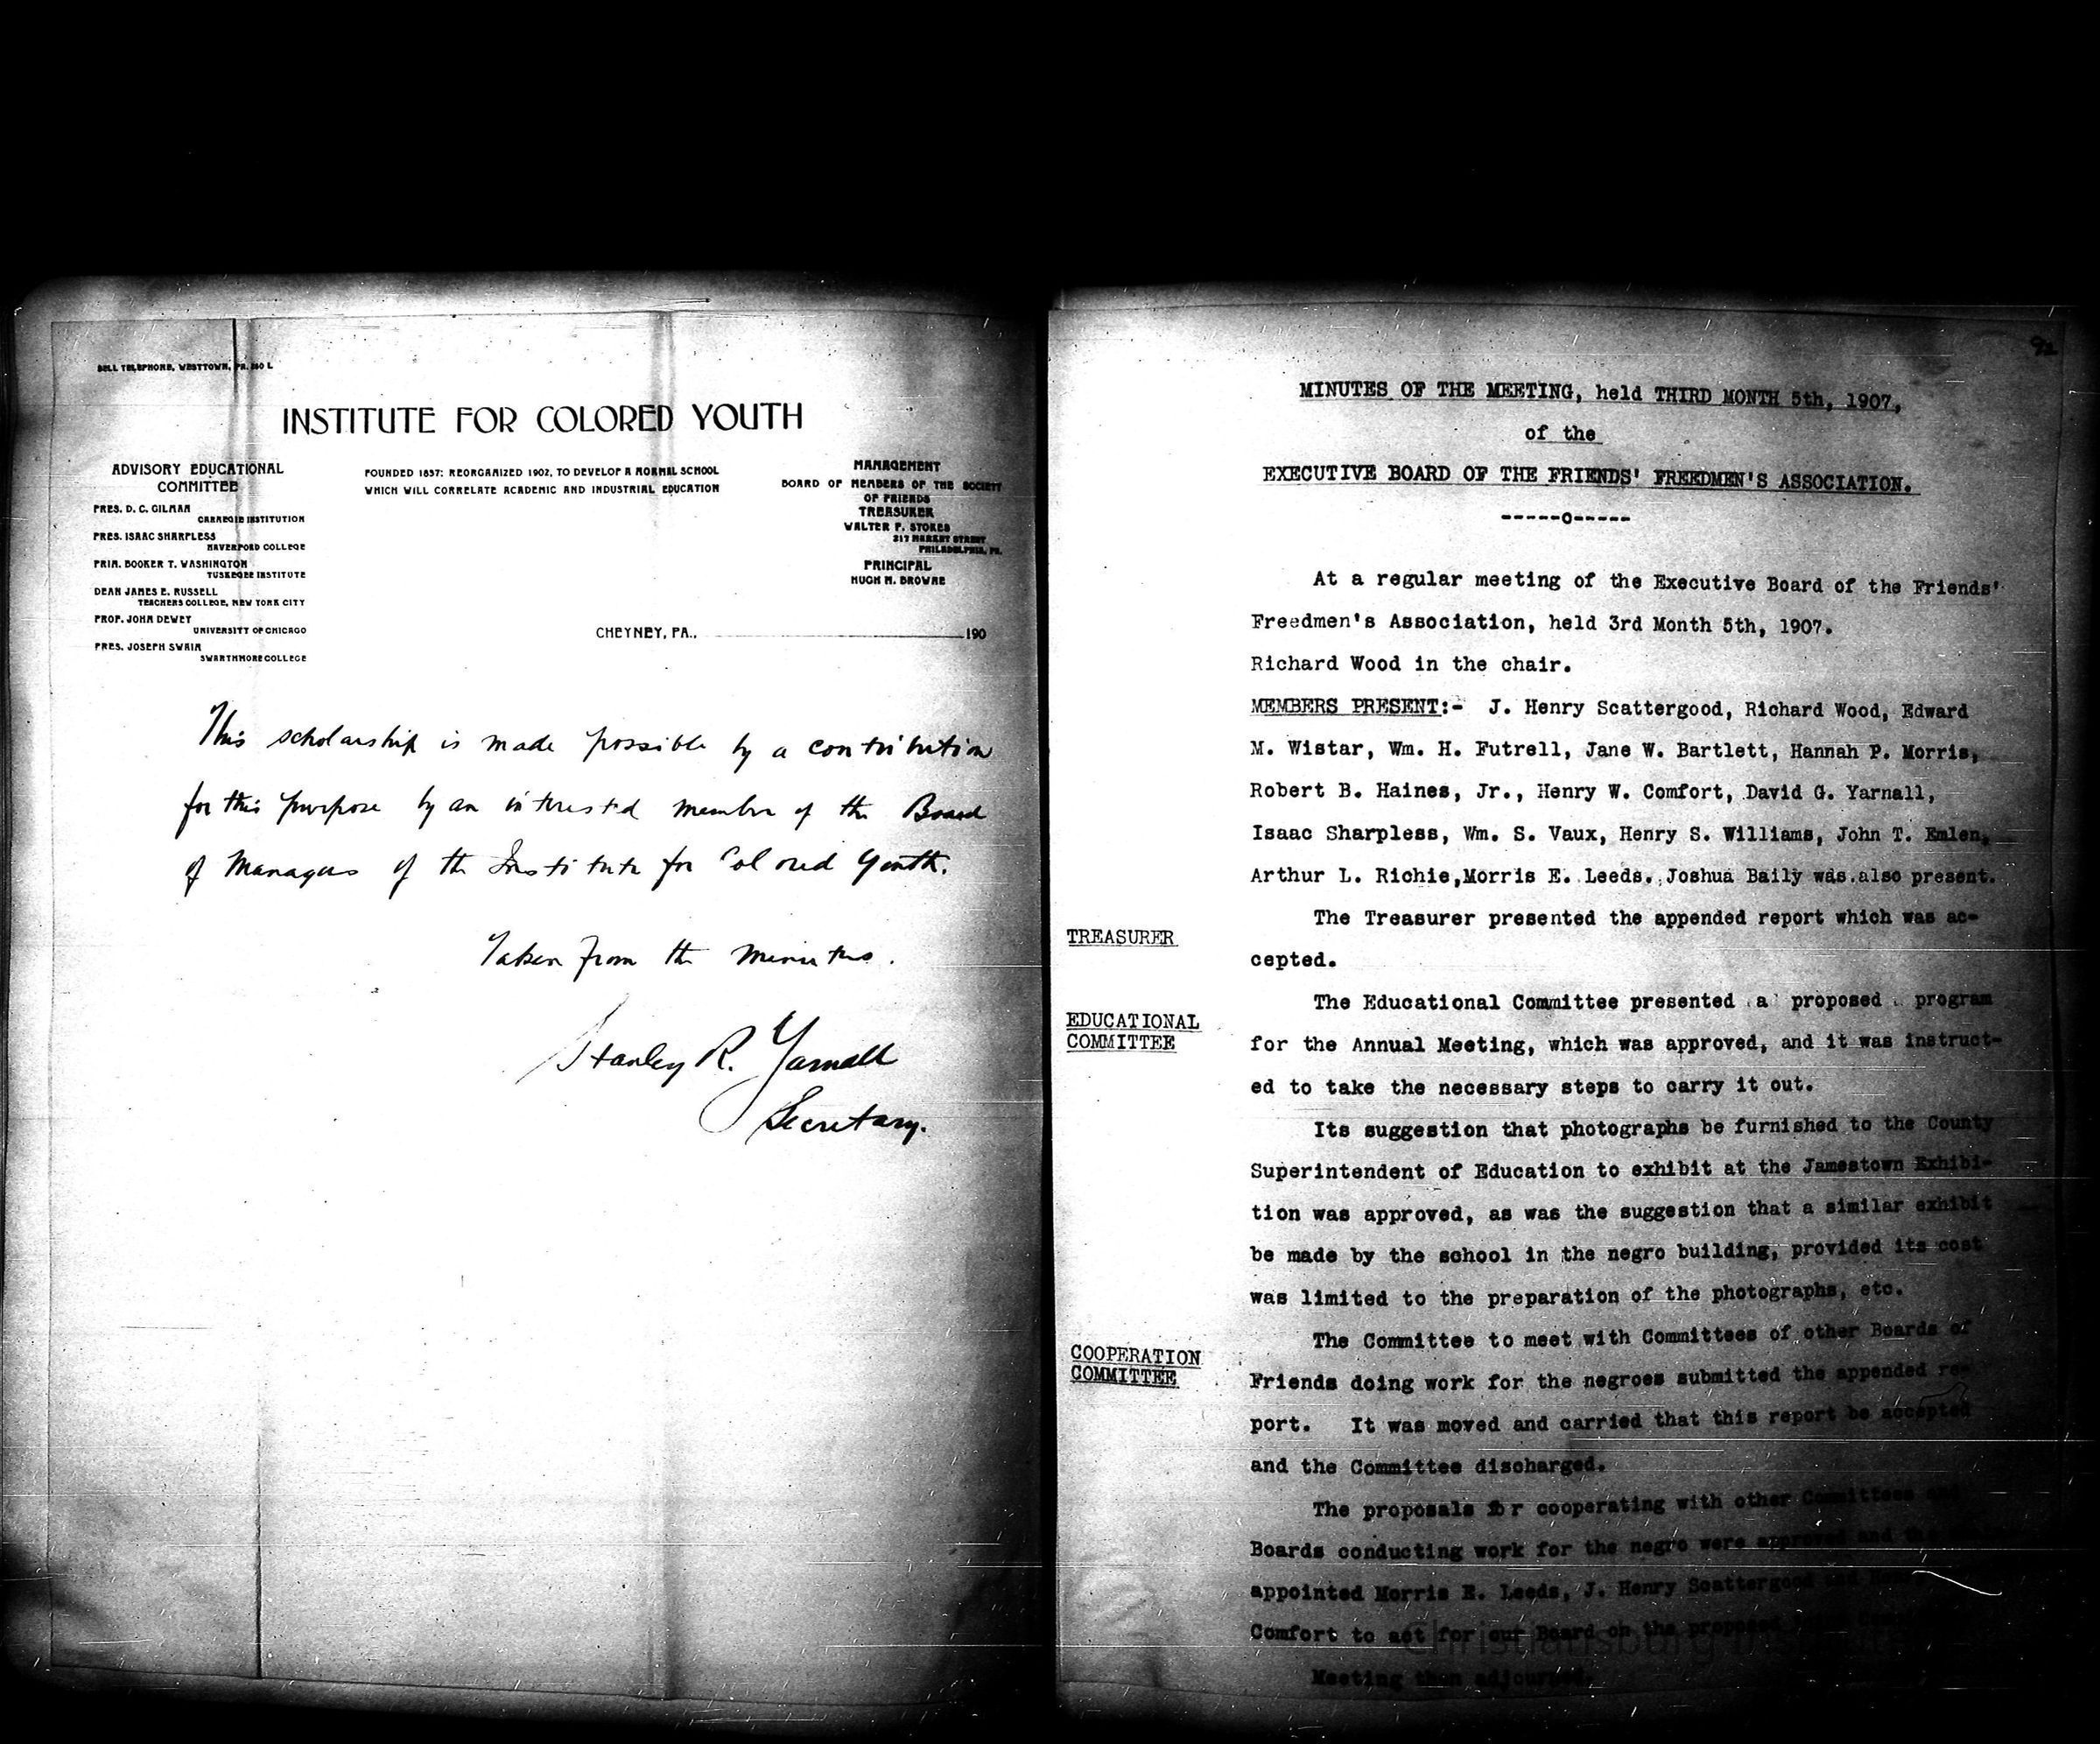 BELL TELEPHONE, WESTTOWN, PA. 260 L
INSTITUTE FOR COLORED YOUTH
ADVISORY EDUCATIONAL
COMMITTEE
PRES. D. C. GILMAN
CARNEGIE INSTITUTION
PRES. ISAAC SHARPLESS
HAVERFORD COLLEGE
PRIN. BOOKER T. WASHINGTON
TUSKEGEE INSTITUTE
DEAN JAMES E. RUSSELL
TEACHERS COLLEGE, NEW YORK CITY
PROF. JOHN DEWEY
UNIVERSITY OF CHICAGO
PRES. JOSEPH SWAIN
SWARTHMORE COLLEGE
FOUNDED 1837: REORGANIZED 1902, TO DEVELOP A NORMAL SCHOOL
WHICH WILL CORRELATE ACADEMIC AND INDUSTRIAL EDUCATION
MANAGEMENT
BOARD OF MEMBERS OF THE SOCIETY
OF FRIENDS
TREASURER
WALTER P. STOKES
217 MARKET STREET
PHILADELPHIA, PA.
PRINCIPAL
HUGH M. BROWNE
CHEYNEY, PA., 190
This scholarship is made possible by a contribution
for this purpose by an interested member of the Board
of Managers of the Institute for Colored Youth.
Taken from the minutes.
Stanley R. Yarnall
Secretary.
92
MINUTES OF THE MEETING, held THIRD MONTH 5th, 1907,
of the
EXECUTIVE BOARD OF THE FRIENDS' FREEDMEN'S ASSOCIATION.
-----o-----
At a regular meeting of the Executive Board of the Friends'
Freedmen's Association, held 3rd Month 5th, 1907.
Richard Wood in the chair.
MEMBERS PRESENT:- J. Henry Scattergood, Richard Wood, Edward
M. Wistar, Wm. H. Futrell, Jane W. Bartlett, Hannah P. Morris,
Robert B. Haines, Jr., Henry W. Comfort, David G. Yarnall,
Isaac Sharpless, Wm. S. Vaux, Henry S. Williams, John T. Emlen,
Arthur L. Richie,Morris E. Leeds. Joshua Baily was also present.
TREASURER
The Treasurer presented the appended report which was ac-
cepted.
EDUCATIONAL
COMMITTEE
The Educational Committee presented a proposed program
for the Annual Meeting, which was approved, and it was instruct-
ed to take the necessary steps to carry it out.
Its suggestion that photographs be furnished to the County
Superintendent of Education to exhibit at the Jamestown Exhibi-
tion was approved, as was the suggestion that a similar exhibit
be made by the school in the negro building, provided its cost
was limited to the preparation of the photographs, etc.
COOPERATION
COMMITTEE
The Committee to meet with Committees of other Boards of
Friends doing work for the negroes submitted the appended re-
port. It was moved and carried that this report be accepted
and the Committee discharged.
The proposals for cooperating with other Committees and
Boards conducting work for the negro were approved and the
appointed Morris E. Leeds, J. Henry Scattergood and
Comfort to act for our Board on the proposed
Meeting then adjourned.
Christiansburg Institute